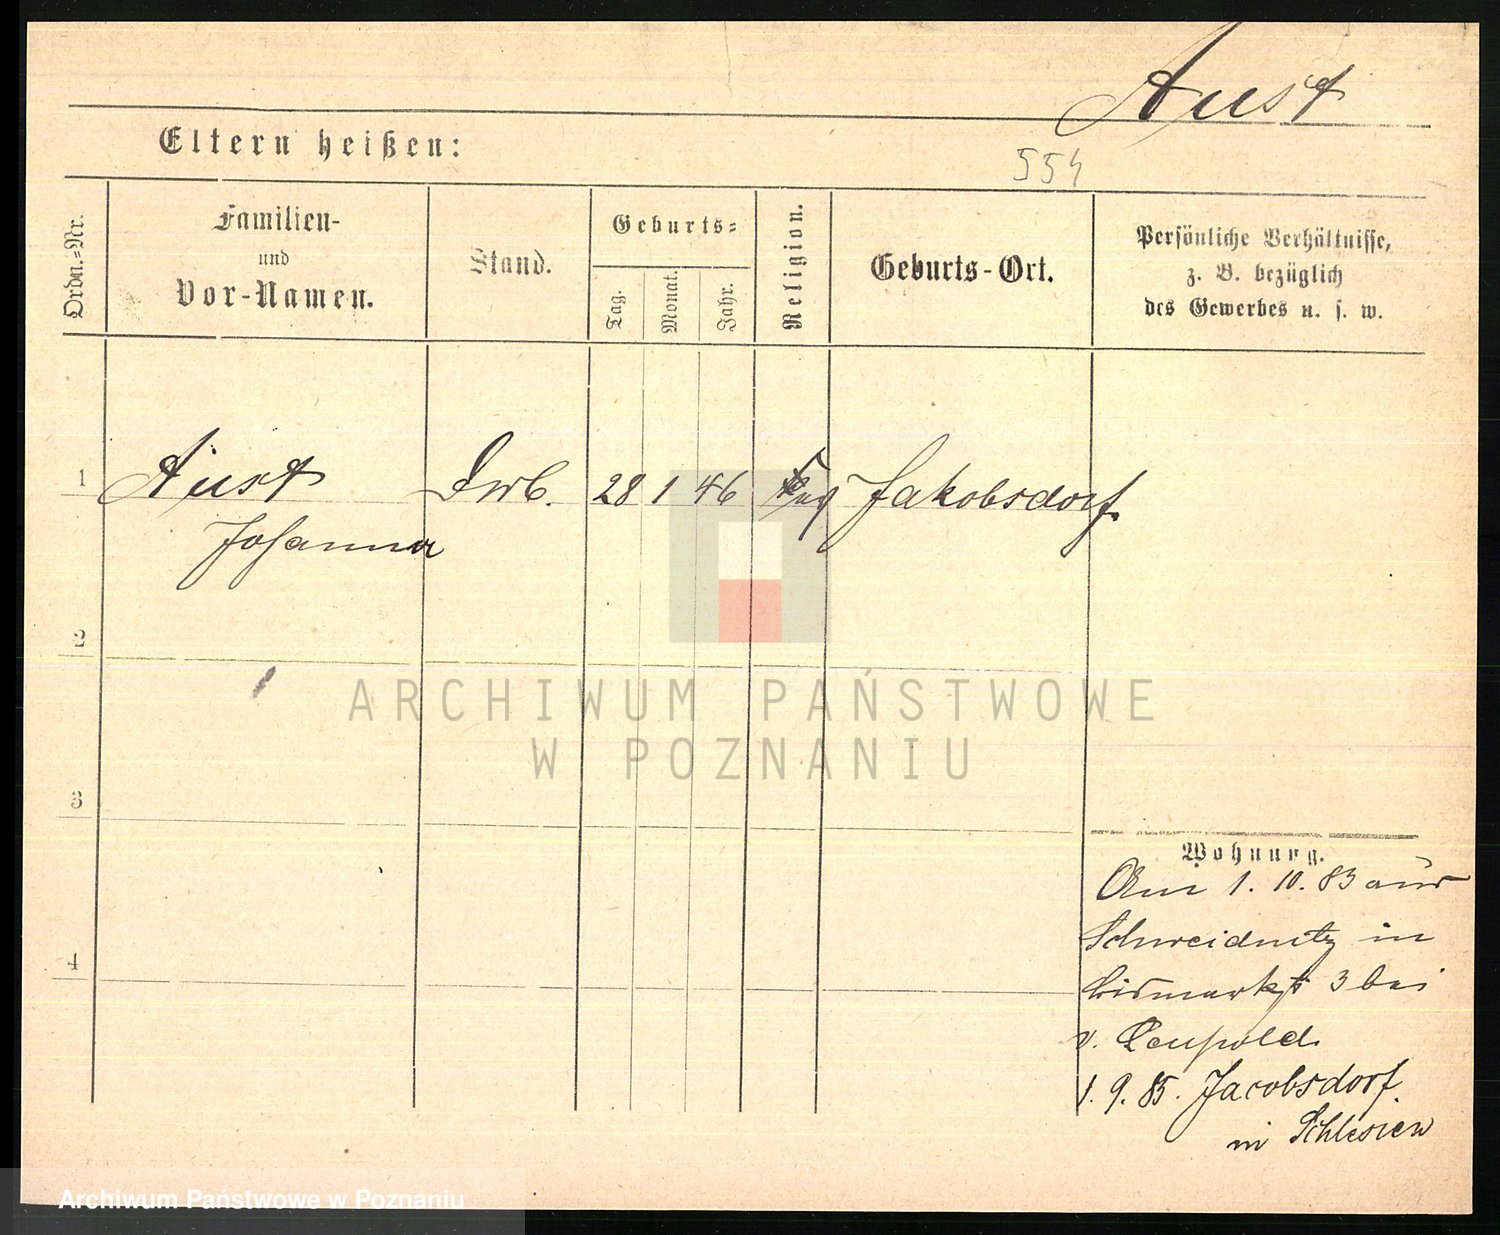 Aust
Eltern heißen:
554
Ordn.=Nr.
Familien-
und
Vor-Namen.
Stand.
Geburts=
Tag.
Monat.
Jahr.
Religion.
Geburts-Ort.
Persönliche Verhältnisse,
z. B. bezüglich
des Gewerbes u. s. w.
1
Aust
Johanna
28 1 46
Jakobsdorf
2
3
4
ARCHIWUM PAŃSTWOWE
W POZNANIU
Wohnung.
Am 1. 10. 83 aus
Schweidnitz in
Bismarkst 3 bei
v. Leupold
1. 9. 85. Jacobsdorf.
in Schlesien
Archiwum Państwowe w Poznaniu